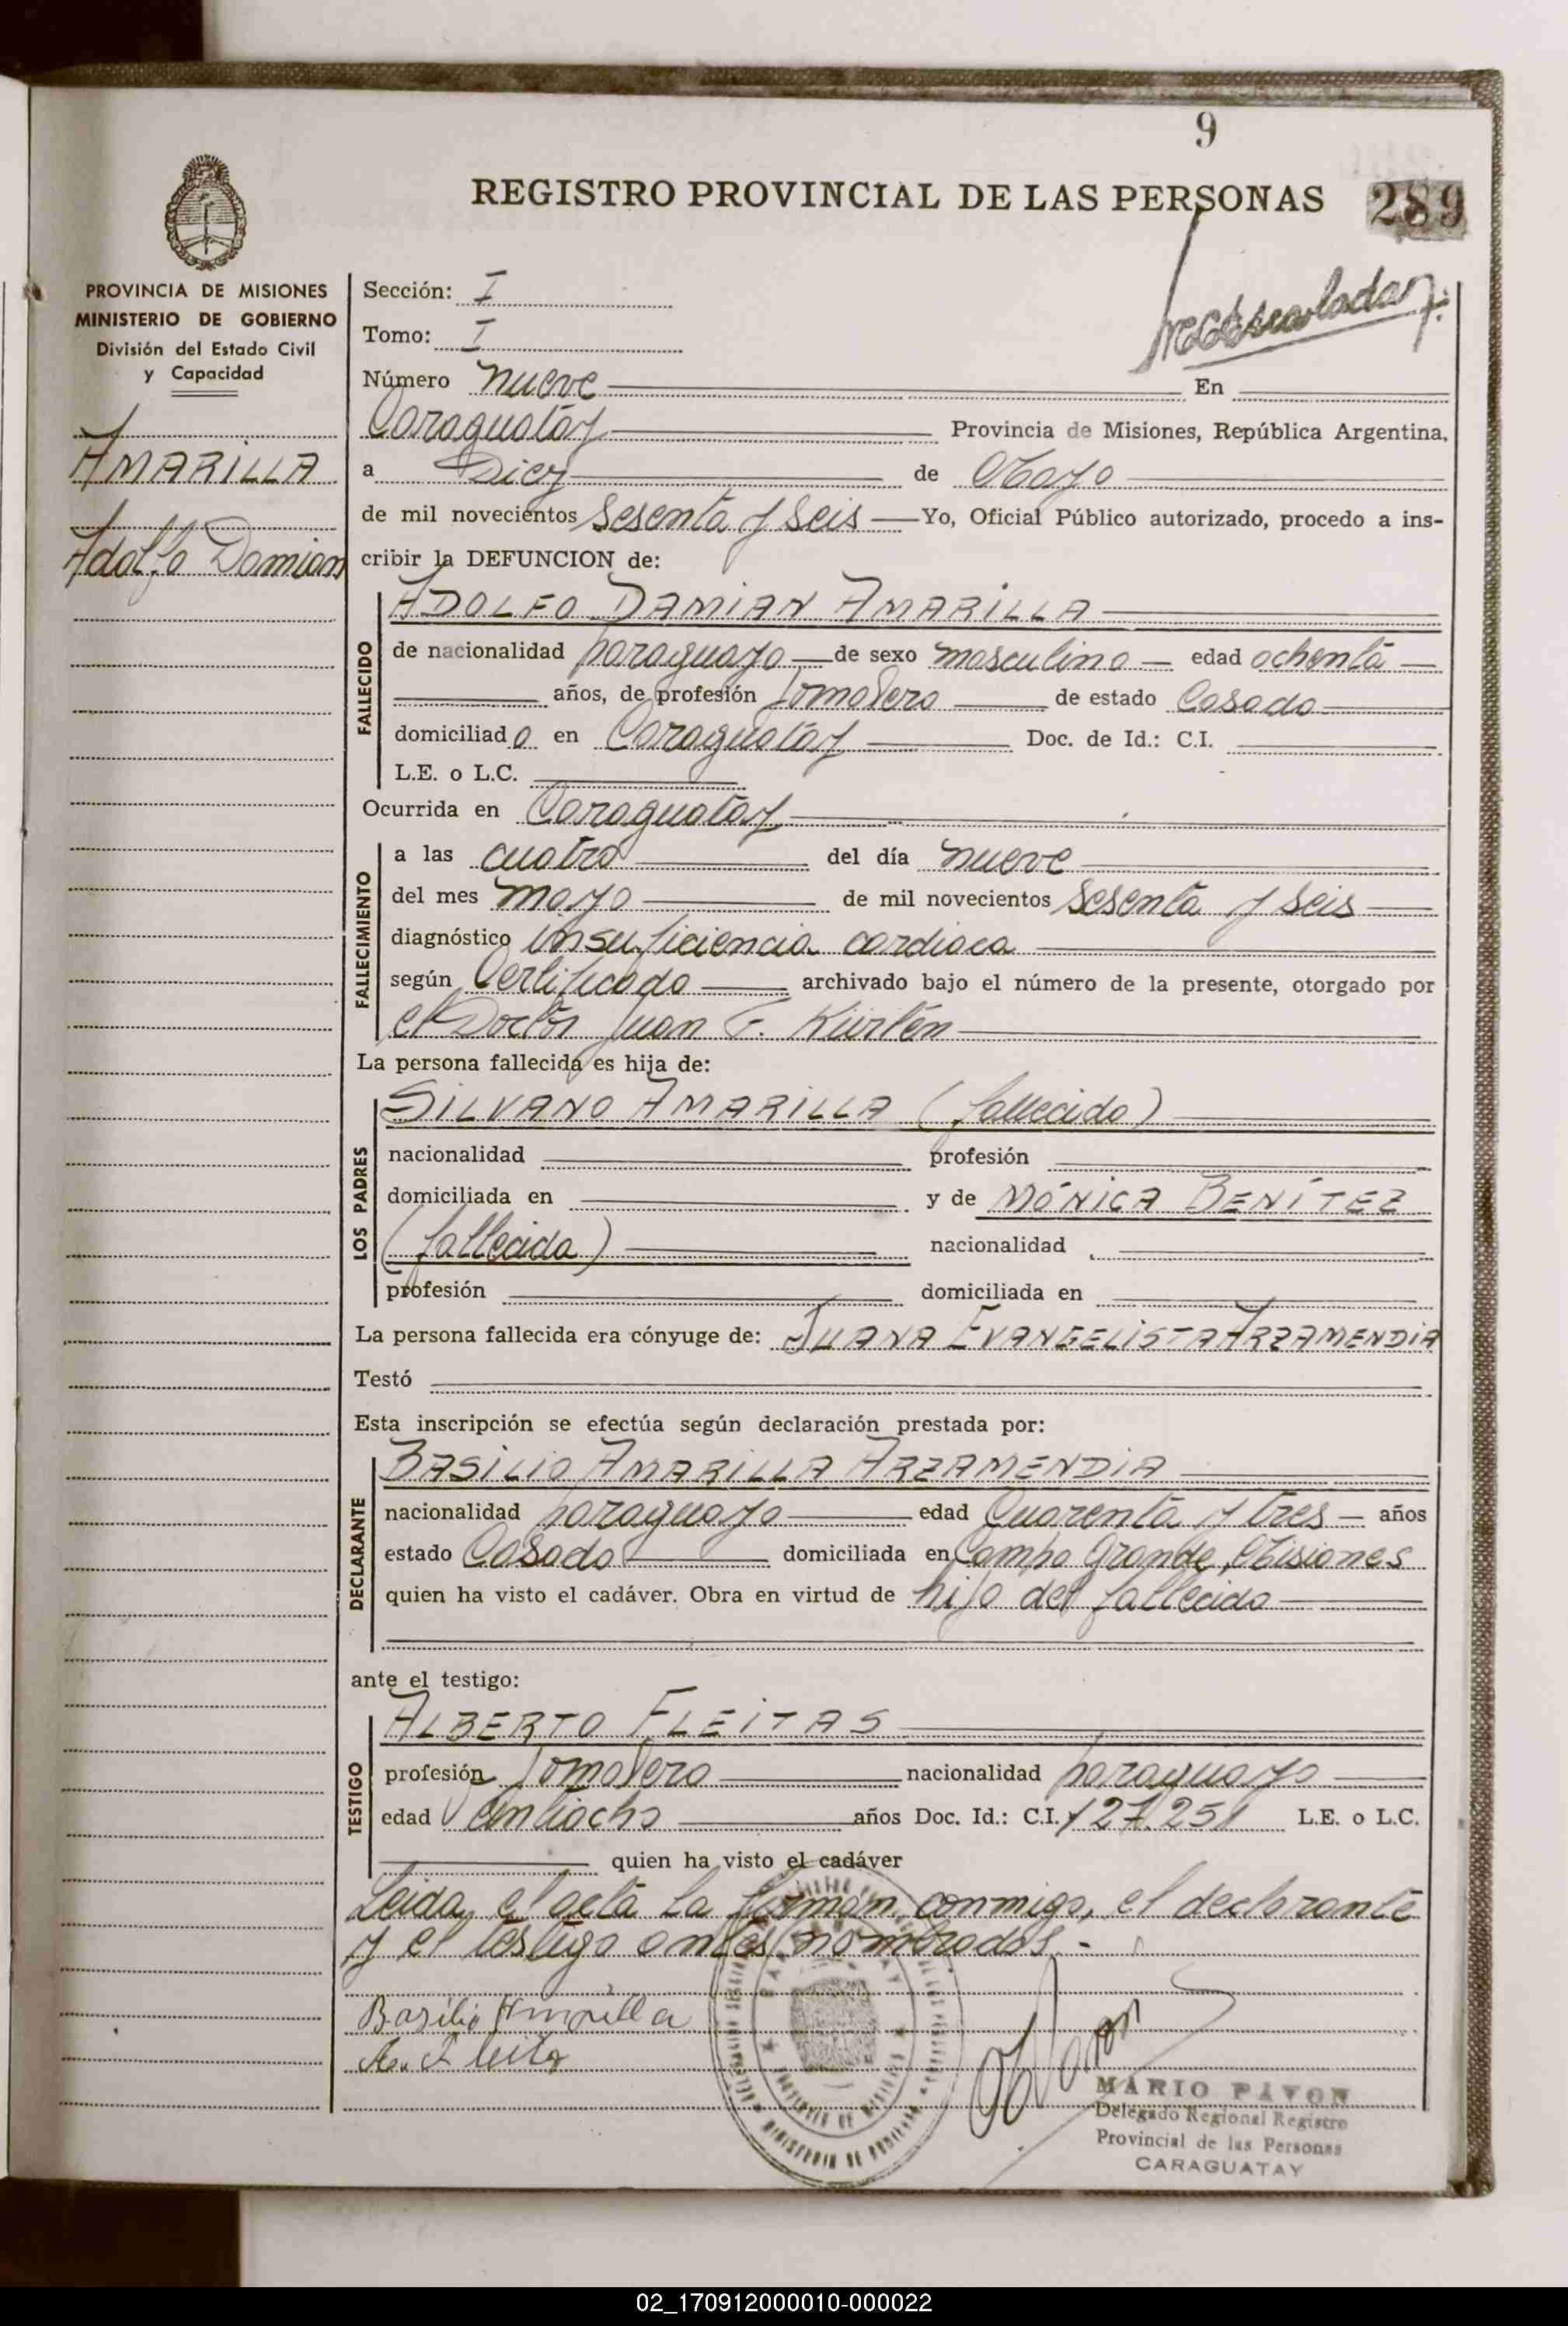 9
REGISTRO PROVINCIAL DE LAS PERSONAS
289
PROVINCIA DE MISIONES
MINISTERIO DE GOBIERNO
División del Estado Civil
y Capacidad
AMARILLA
Adolfo Damian
Sección: I
Tomo: I
Número nueve En
Caraguatay Provincia de Misiones, República Argentina,
a Diez de Mayo
de mil novecientos sesenta y seis Yo, Oficial Público autorizado, procedo a ins-
cribir la DEFUNCION de:
FALLECIDO
ADOLFO DAMIAN AMARILLA
de nacionalidad paraguayo de sexo masculino edad ochenta
años, de profesión Jornalero de estado Casado
domiciliado en Caraguatay Doc. de Id.: C.I.
L.E. o L.C.
Ocurrida en Caraguatay
FALLECIMIENTO
a las cuatro del día nueve
del mes mayo de mil novecientos sesenta y seis
diagnóstico insuficiencia cardiaca
según Certificado archivado bajo el número de la presente, otorgado por
el Doctor Juan F. Kürten
La persona fallecida es hija de:
LOS PADRES
SILVANO AMARILLA (fallecido)
nacionalidad profesión
domiciliada en y de MÓNICA BENÍTEZ
(fallecida) nacionalidad
profesión domiciliada en
La persona fallecida era cónyuge de: JUANA EVANGELISTA ARZAMENDIA
Testó
Esta inscripción se efectúa según declaración prestada por:
DECLARANTE
BASILIO AMARILLA ARZAMENDIA
nacionalidad paraguayo edad Cuarenta y tres años
estado Casado domiciliada en Campo Grande, Misiones
quien ha visto el cadáver. Obra en virtud de hijo del fallecido
ante el testigo:
TESTIGO
ALBERTO FLEITAS
profesión Jornalero nacionalidad paraguayo
edad Veintiocho años Doc. Id.: C.I. 127.251 L.E. o L.C.
quien ha visto el cadáver
Leida el acta la firman conmigo, el declarante
y el testigo antes nombrados.-
Basilio Amarilla
MARIO PAVON
Delegado Regional Registro
Provincial de las Personas
CARAGUATAY
02_170912000010-000022